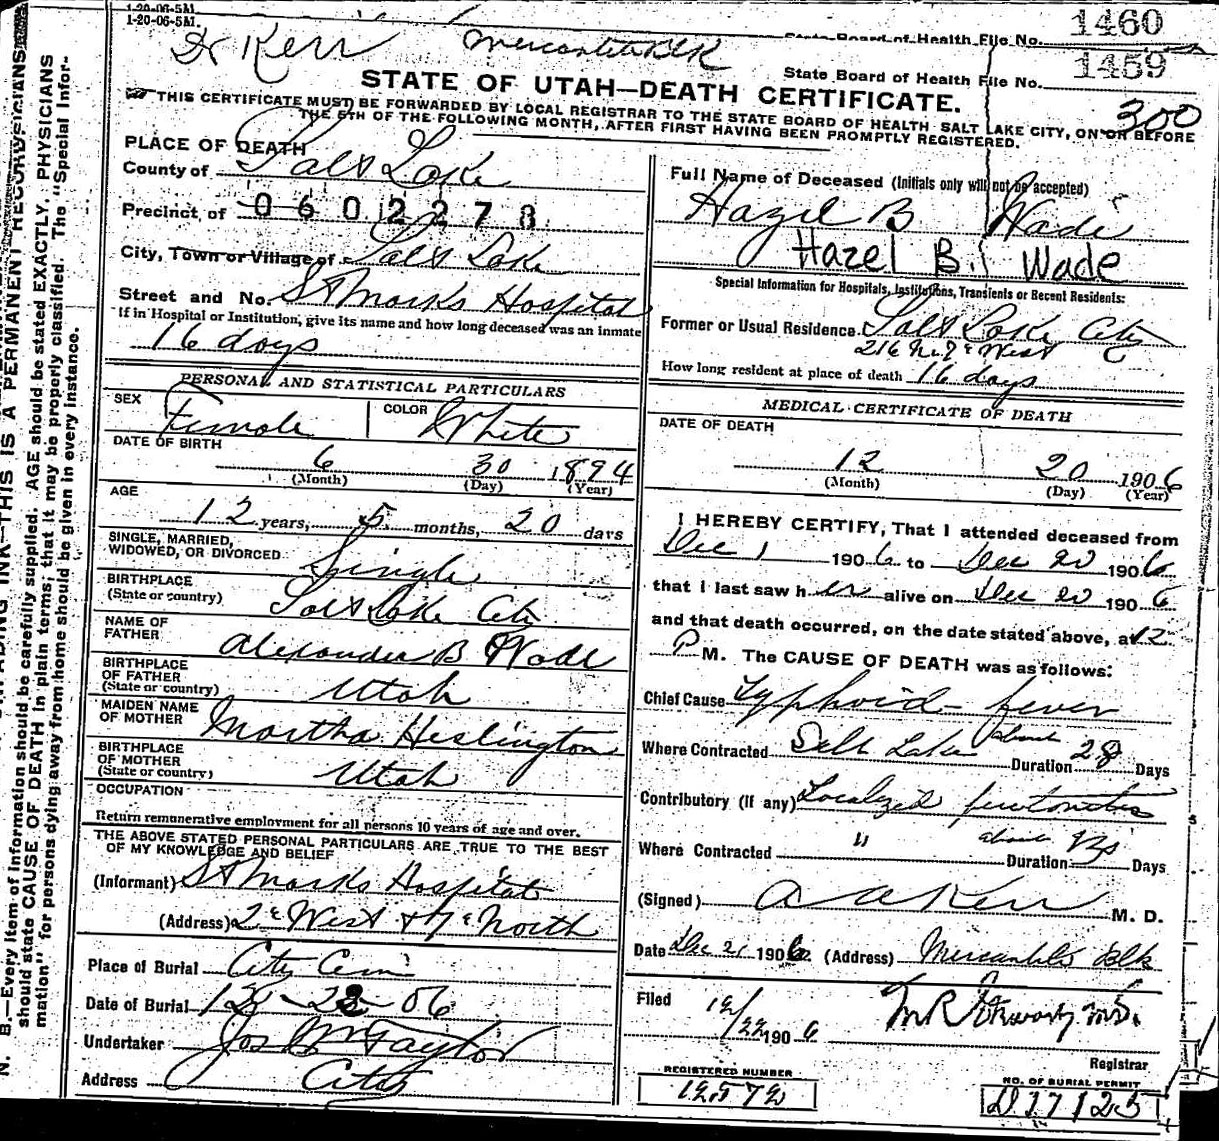 1-20-06-5M.
1-20-06-5M.
State Board of Health File No. 1460
Dr Kerr Mercantile Blk
State Board of Health File No. 1459
STATE OF UTAH—DEATH CERTIFICATE.
300
THIS CERTIFICATE MUST BE FORWARDED BY LOCAL REGISTRAR TO THE STATE BOARD OF HEALTH SALT LAKE CITY, ON OR BEFORE
THE 5TH OF THE FOLLOWING MONTH, AFTER FIRST HAVING BEEN PROMPTLY REGISTERED.
PLACE OF DEATH
County of Salt Lake
Precinct of 0602278
City, Town or Village of Salt Lake
Street and No. St Marks Hospital
If in Hospital or Institution, give its name and how long deceased was an inmate
16 days
PERSONAL AND STATISTICAL PARTICULARS
SEX Female COLOR White
DATE OF BIRTH
6 30 1894
(Month) (Day) (Year)
AGE
12 years, 5 months, 20 days
SINGLE, MARRIED,
WIDOWED, OR DIVORCED Single
BIRTHPLACE
(State or country) Salt Lake City
NAME OF
FATHER Alexander B Wade
BIRTHPLACE
OF FATHER
(State or country) Utah
MAIDEN NAME
OF MOTHER Martha Heslington
BIRTHPLACE
OF MOTHER
(State or country) Utah
OCCUPATION
Return remunerative employment for all persons 10 years of age and over.
THE ABOVE STATED PERSONAL PARTICULARS ARE TRUE TO THE BEST
OF MY KNOWLEDGE AND BELIEF
(Informant) St Marks Hospital
(Address) 2d West & 7th North
Place of Burial City Cem
Date of Burial 12-23-06
Undertaker Jos Wm Taylor
Address City
Full Name of Deceased (Initials only will not be accepted)
Hazel B Wade
Hazel B. Wade
Special Information for Hospitals, Institutions, Transients or Recent Residents:
Former or Usual Residence. Salt Lake City
West
How long resident at place of death 16 days
MEDICAL CERTIFICATE OF DEATH
DATE OF DEATH
12 20 1906
(Month) (Day) (Year)
I HEREBY CERTIFY, That I attended deceased from
Dec 1 1906 to Dec 20 1906
that I last saw her alive on Dec 20 1906
and that death occurred, on the date stated above, at 12
P M. The CAUSE OF DEATH was as follows:
Chief Cause Typhoid fever
Where Contracted Salt Lake Duration about 28 Days
Contributory (if any) Localized peritonitis
Where Contracted " Duration about Days
(Signed) A A Kerr M. D.
Date Dec 21 1906 (Address) Mercantile Blk
Filed 12/22 1906
Registrar
REGISTERED NUMBER
12572
NO. OF BURIAL PERMIT
D17125
N. B.—Every item of information should be carefully supplied. AGE should be stated EXACTLY. PHYSICIANS
should state CAUSE OF DEATH in plain terms; that it may be properly classified. The "Special Infor-
mation" for persons dying away from home should be given in every instance.
INK—THIS IS A PERMANENT RECORD